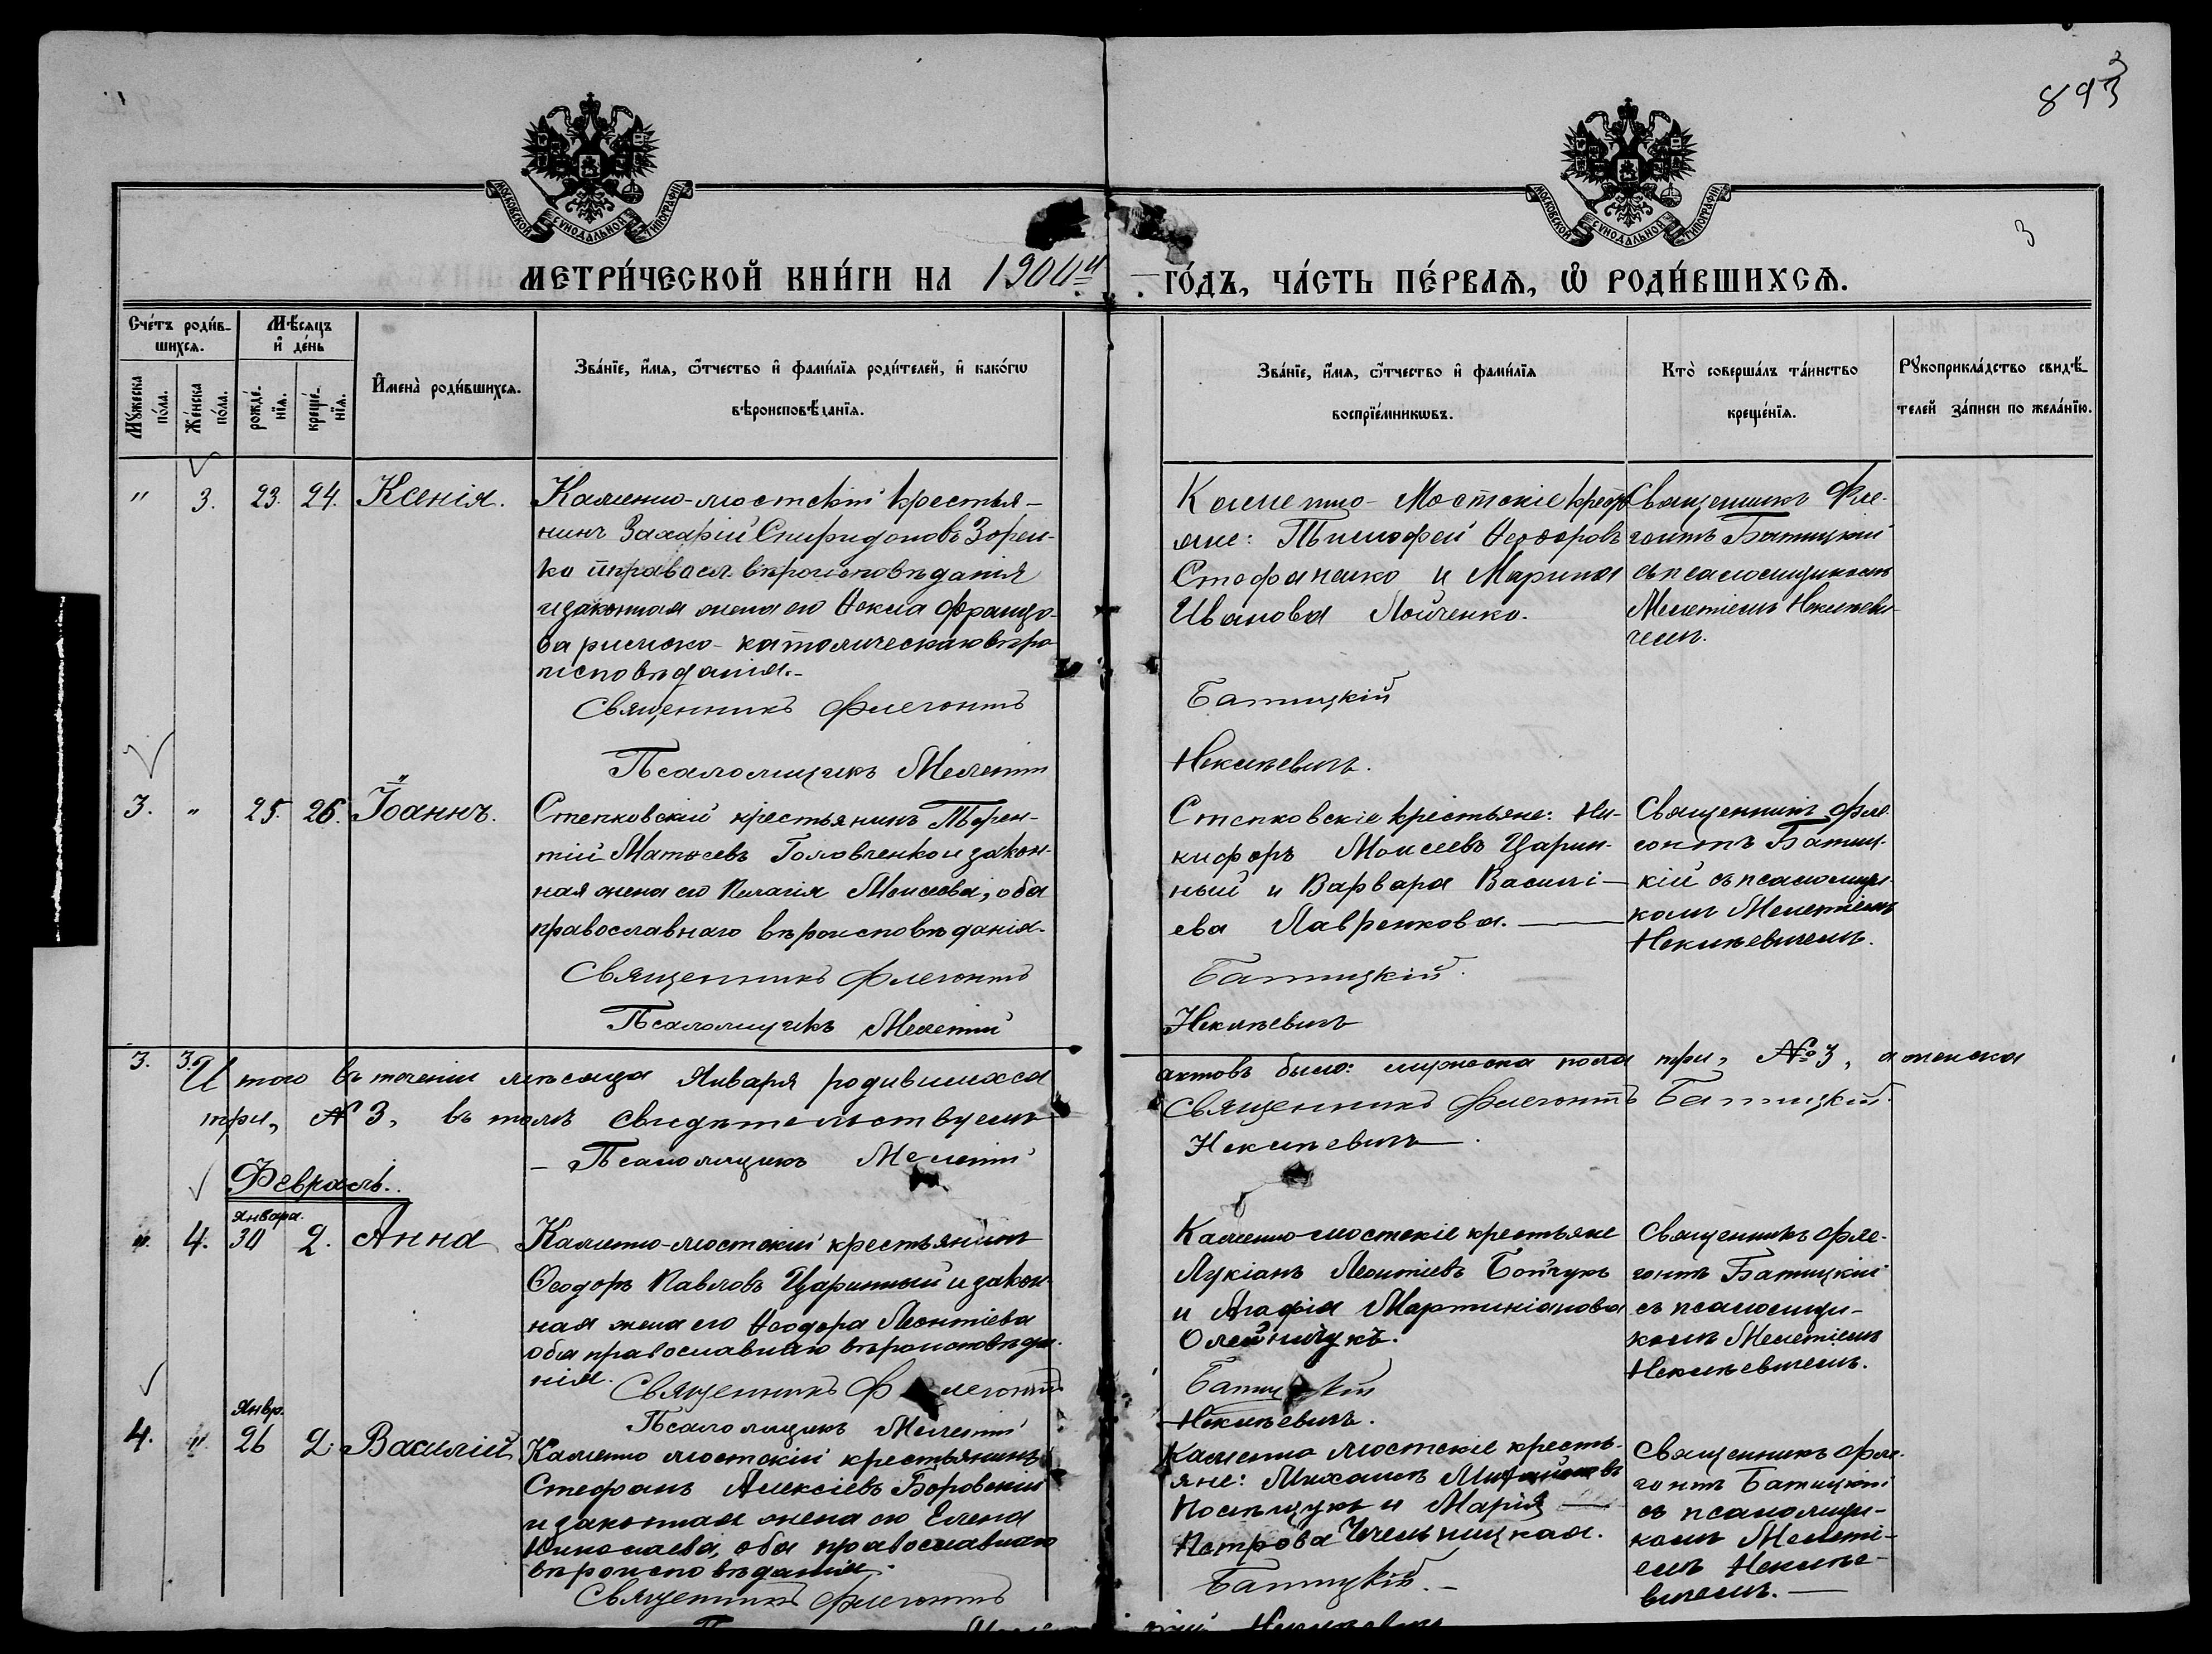 893
3
МОСКОВСКОЙ СѴНОДАЛЬНОЙ ТИПОГРАФІИ
МОСКОВСКОЙ СѴНОДАЛЬНОЙ ТИПОГРАФІИ
МЕТРИ́ЧЕСКОЙ КНИ́ГИ НА 1900й ГО́ДЪ, ЧА́СТЬ ПЕ́РВАѦ, Ѽ РОДИ́ВШИХСѦ.
Сче́тъ роди́в-
шихсѧ.
Мꙋ́жеска по́ла.
Же́нска по́ла.
Мѣ́сяцъ
и҆ де́нь
рожде́-
нїѧ.
креще́-
нїѧ.
И҆мена̀ роди́вшихсѧ.
Зва́нїе, и҆́мѧ, ѻ҆́тчество и҆ фами́лїѧ роди́телей, и҆ како́гѡ
вѣроисповѣ́данїѧ.
Зва́нїе, и҆́мѧ, ѻ҆́тчество и҆ фами́лїѧ
воспрїе́мникѡвъ.
Кто̀ соверша́лъ та́инство
креще́нїѧ.
Рꙋкоприкла́дство свидѣ́-
телей за́писи по жела́нїю.
" 3. 23. 24. Ксенія.
Каменно-мостскій крестья-
нинъ Захарій Спиридоновъ Зорен-
ко правосл. вѣроисповѣданія
и законная жена его Ѳекла Францо-
ва римско-католическаго вѣро-
исповѣданія.-
Священникъ Флегонтъ
Псаломщикъ Мелетій
Каменно-Мостскіе крестья-
яне: Тимофей Ѳеодоровъ
Стефаненко и Марина
Иванова Лойченко.
Батицкій
Некилевичъ.
Священникъ Фле-
гонтъ Батицкій
съ псаломщикомъ
Мелетіемъ
чемъ.
3. " 25. 26. Іоаннъ.
Степковскій крестьянинъ Терен-
тій Матѳеевъ Головченко и закон-
ная жена его Пелагія Моисеева, оба
православнаго вѣроисповѣданія.
Священникъ Флегонтъ
Псаломщикъ Мелетій
Степковскіе крестьяне: Ни-
кифоръ Моисеевъ Царин-
ный и Варвара Василі-
ева Лавренкова.
Батицкій.
Священникъ Фле-
гонтъ Батиц-
кій съ псаломщи-
комъ Мелетіемъ
3. 3. Итого въ теченіи мѣсяца Января родившихся
актовъ было: мужеска пола три, № 3, а женска
три, № 3, въ томъ свидѣтельствуемъ
Священникъ Флегонтъ Батицкій.
- Псаломщикъ Мелетій
Февраль.
Января.
" 4. 30 2. Анна
Каменно-мостскій крестьянинъ
Ѳеодоръ Павловъ Царинный и закон-
ная жена его Ѳеодора Леонтіева
оба православнаго вѣроисповѣда-
нія. Священникъ Флегонтъ
Псаломщикъ Мелетій
Каменно-мостскіе крестьяне
Лукіанъ Леонтіевъ Бойчукъ
и Агафія Мартиніанова
Олейничукъ.
Батицкій
Священникъ Фле-
гонтъ Батицкій
съ псаломщи-
комъ Мелетіемъ
Январ.
4. " 26 2. Василій
Каменно мостскій крестьянинъ
Стефанъ Алексіевъ Боровскій
и законная жена его Елена
Николаева, оба православнаго
вѣроисповѣданія.
Священникъ Флегонтъ
Каменно мостскіе кресть-
яне: Михаилъ
и Марія
Петрова
Батицкій.-
Священникъ Фле-
гонтъ Батицкій
съ псаломщи-
комъ Мелеті-
емъ